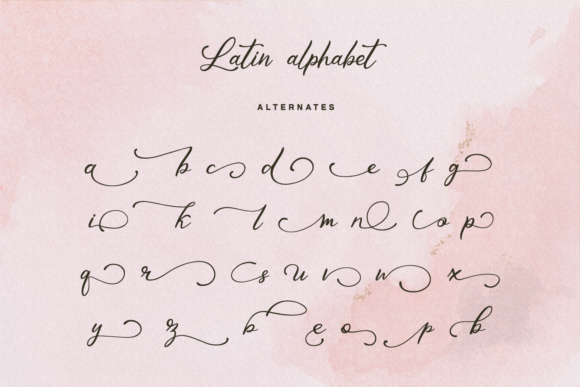 Latin alphabet
ALTERNATES
a b c d e f g
i k l m n o p
q r s u v w x
y z b e o p b